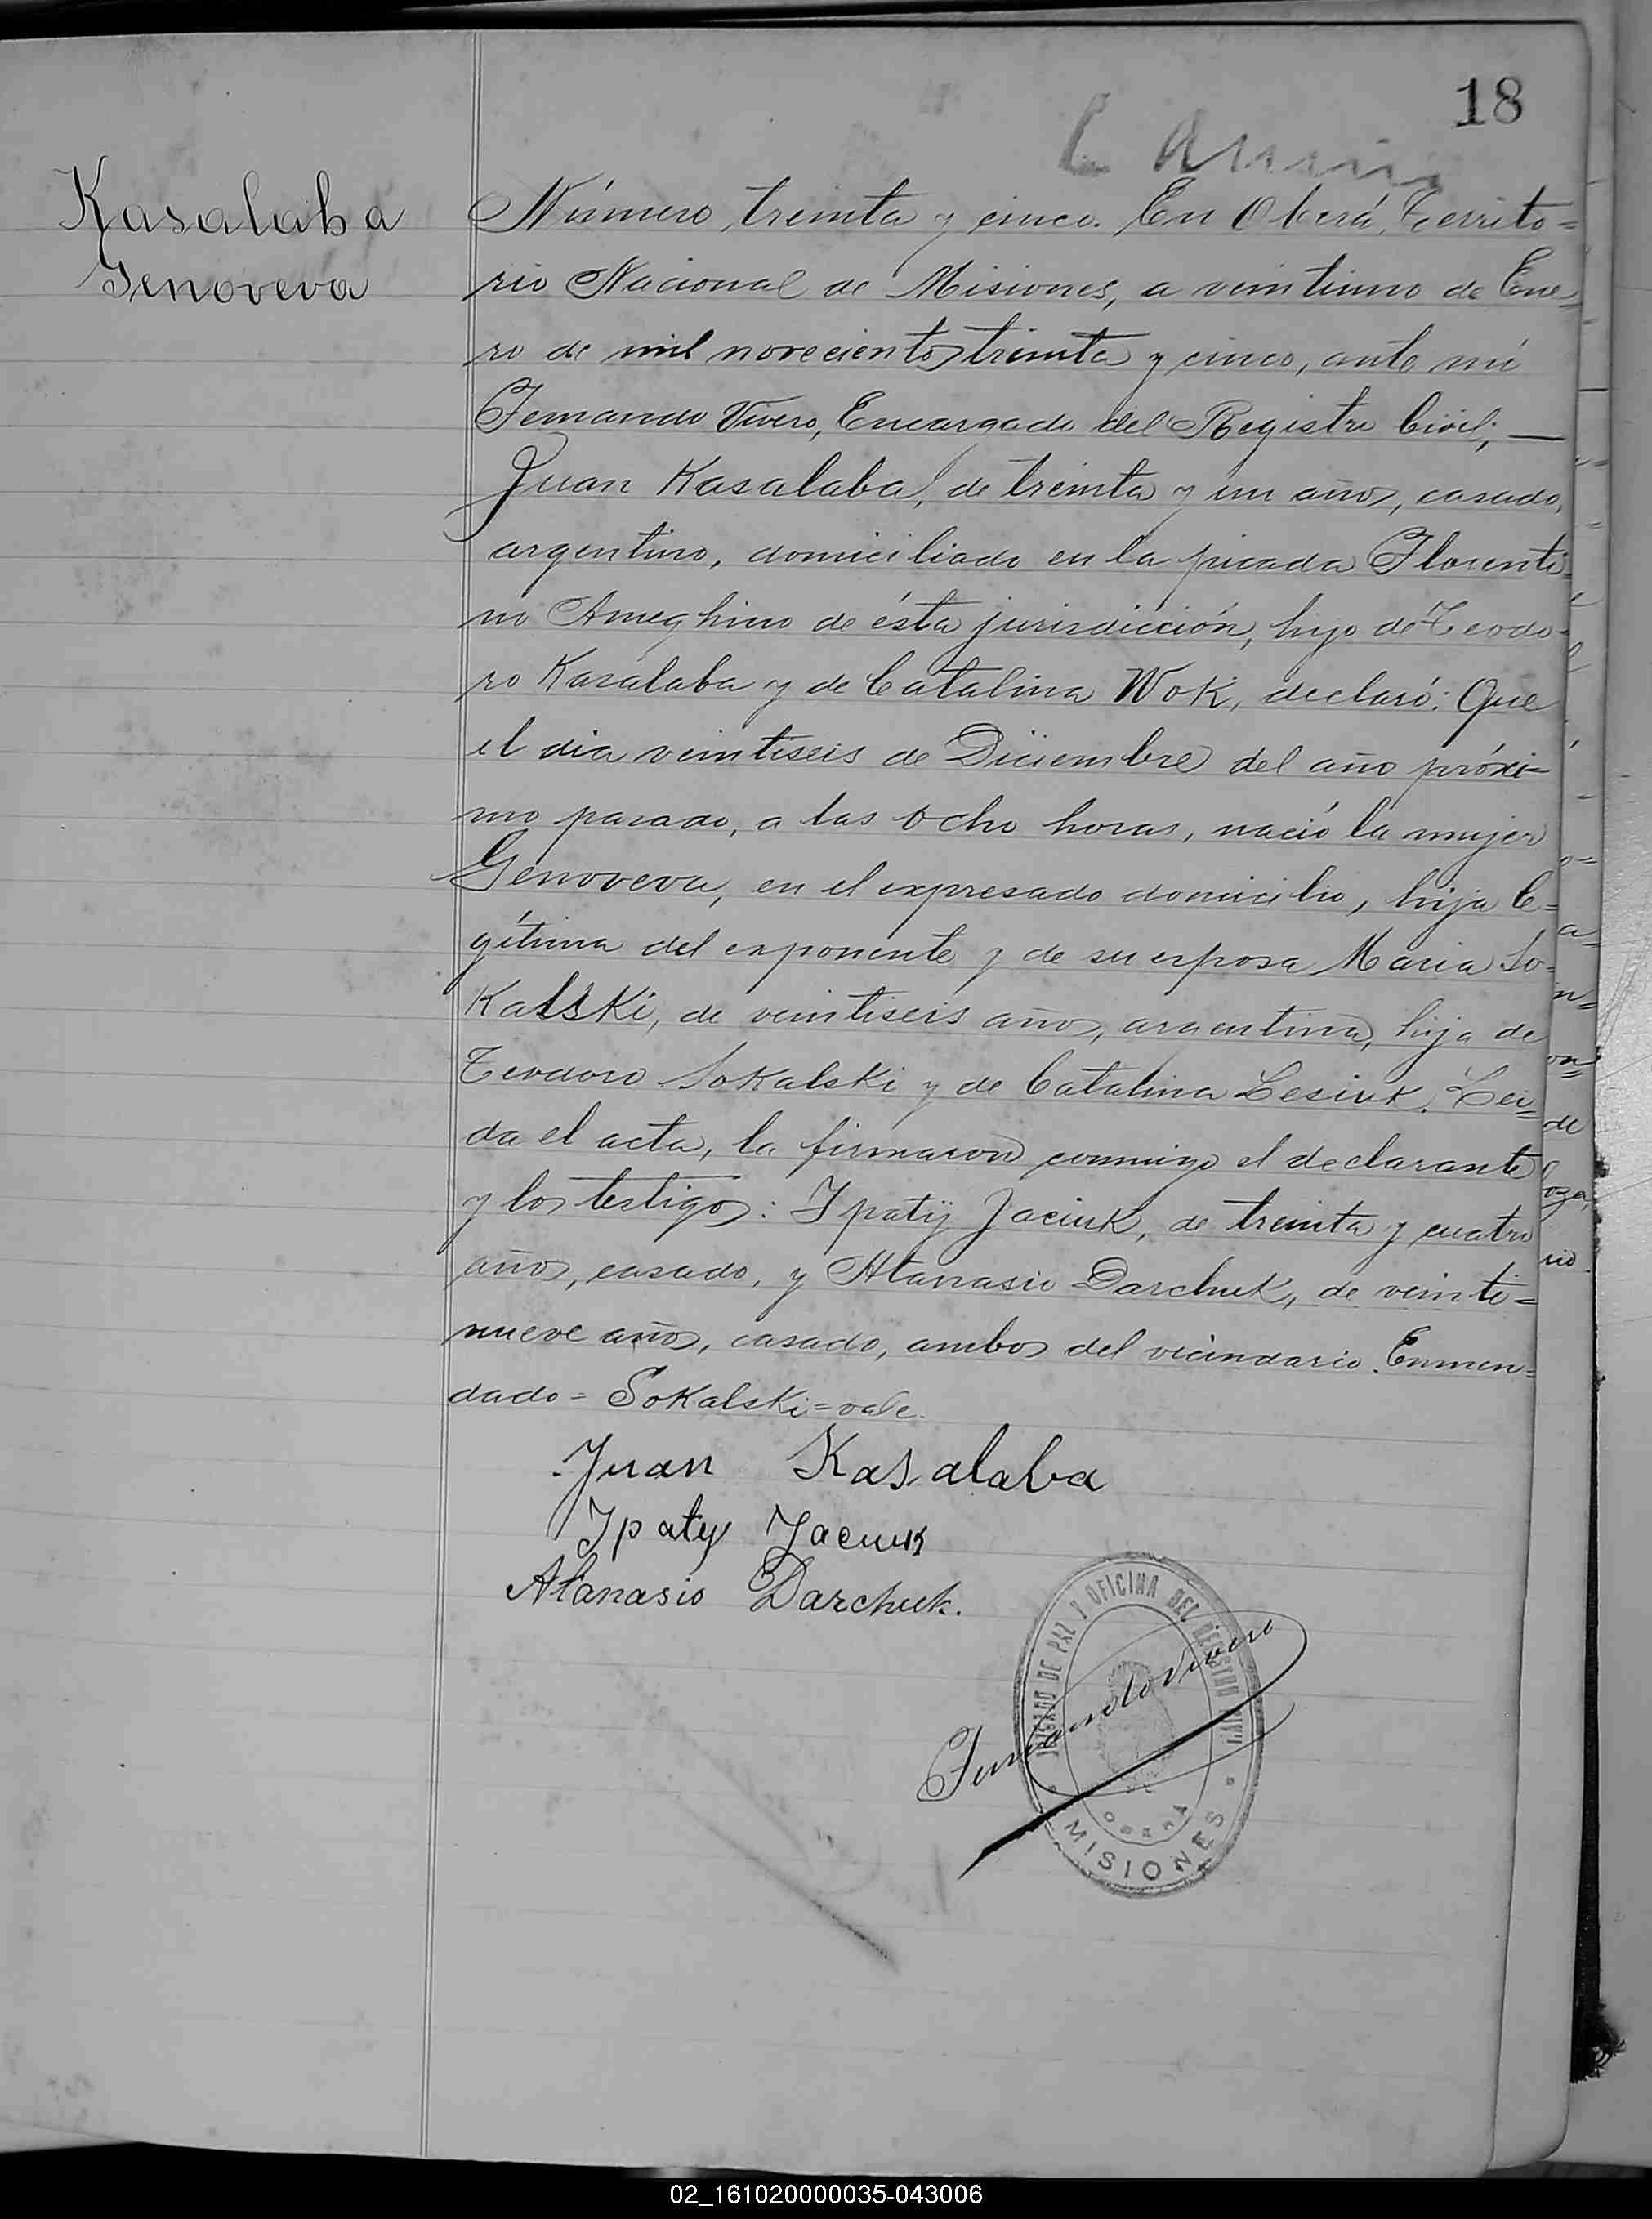 18
Kasalaba
Genoveva
Número treinta y cinco. En Oberá, Territo=
rio Nacional de Misiones, a veintiuno de Ene=
ro de mil novecientos treinta y cinco, ante mí
Fernando Vivero, Encargado del Registro Civil, —
Juan Kasalaba, de treinta y un años, casado,
argentino, domiciliado en la picada Florenti=
no Ameghino de ésta jurisdicción, hijo de Teodo-
ro Kasalaba y de Catalina Wok, declaró: Que
el dia veintiseis de Diciembre del año próxi-
mo pasado, a las ocho horas, nació la mujer
Genoveva, en el expresado domicilio, hija le=
gítima del exponente y de su esposa Maria So=
Kalski, de veintiseis años, argentina, hija de
Teodoro Sokalski y de Catalina Lesiuk. Lei=
da el acta, la firmaron conmigo el declarante
y los testigos: Ipatij Jaciuk, de treinta y cuatro
años, casado, y Atanasio Darchuk, de veinti=
nueve años, casado, ambos del vecindario. Enmen=
dado = Sokalski = vale.
Juan Kasalaba
Ipaty Jaciuk
Atanasio Darchuk.
JUZGADO DE PAZ Y OFICINA DEL REGISTRO CIVIL
OBERA
MISIONES
Fernando Vivero
02_161020000035-043006